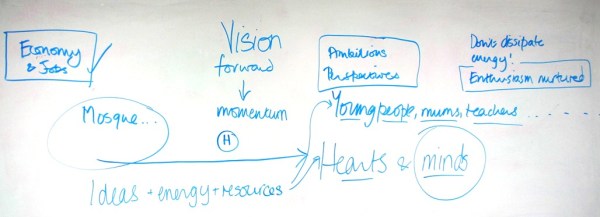 Economy
& Jobs
Vision
forward
momentum
H
Ambitious
Perspectives
Don't dissipate
energy!
Enthusiasm nurtured
Mosque...
Young people, mums, teachers......
Hearts & minds
Ideas + energy + resources